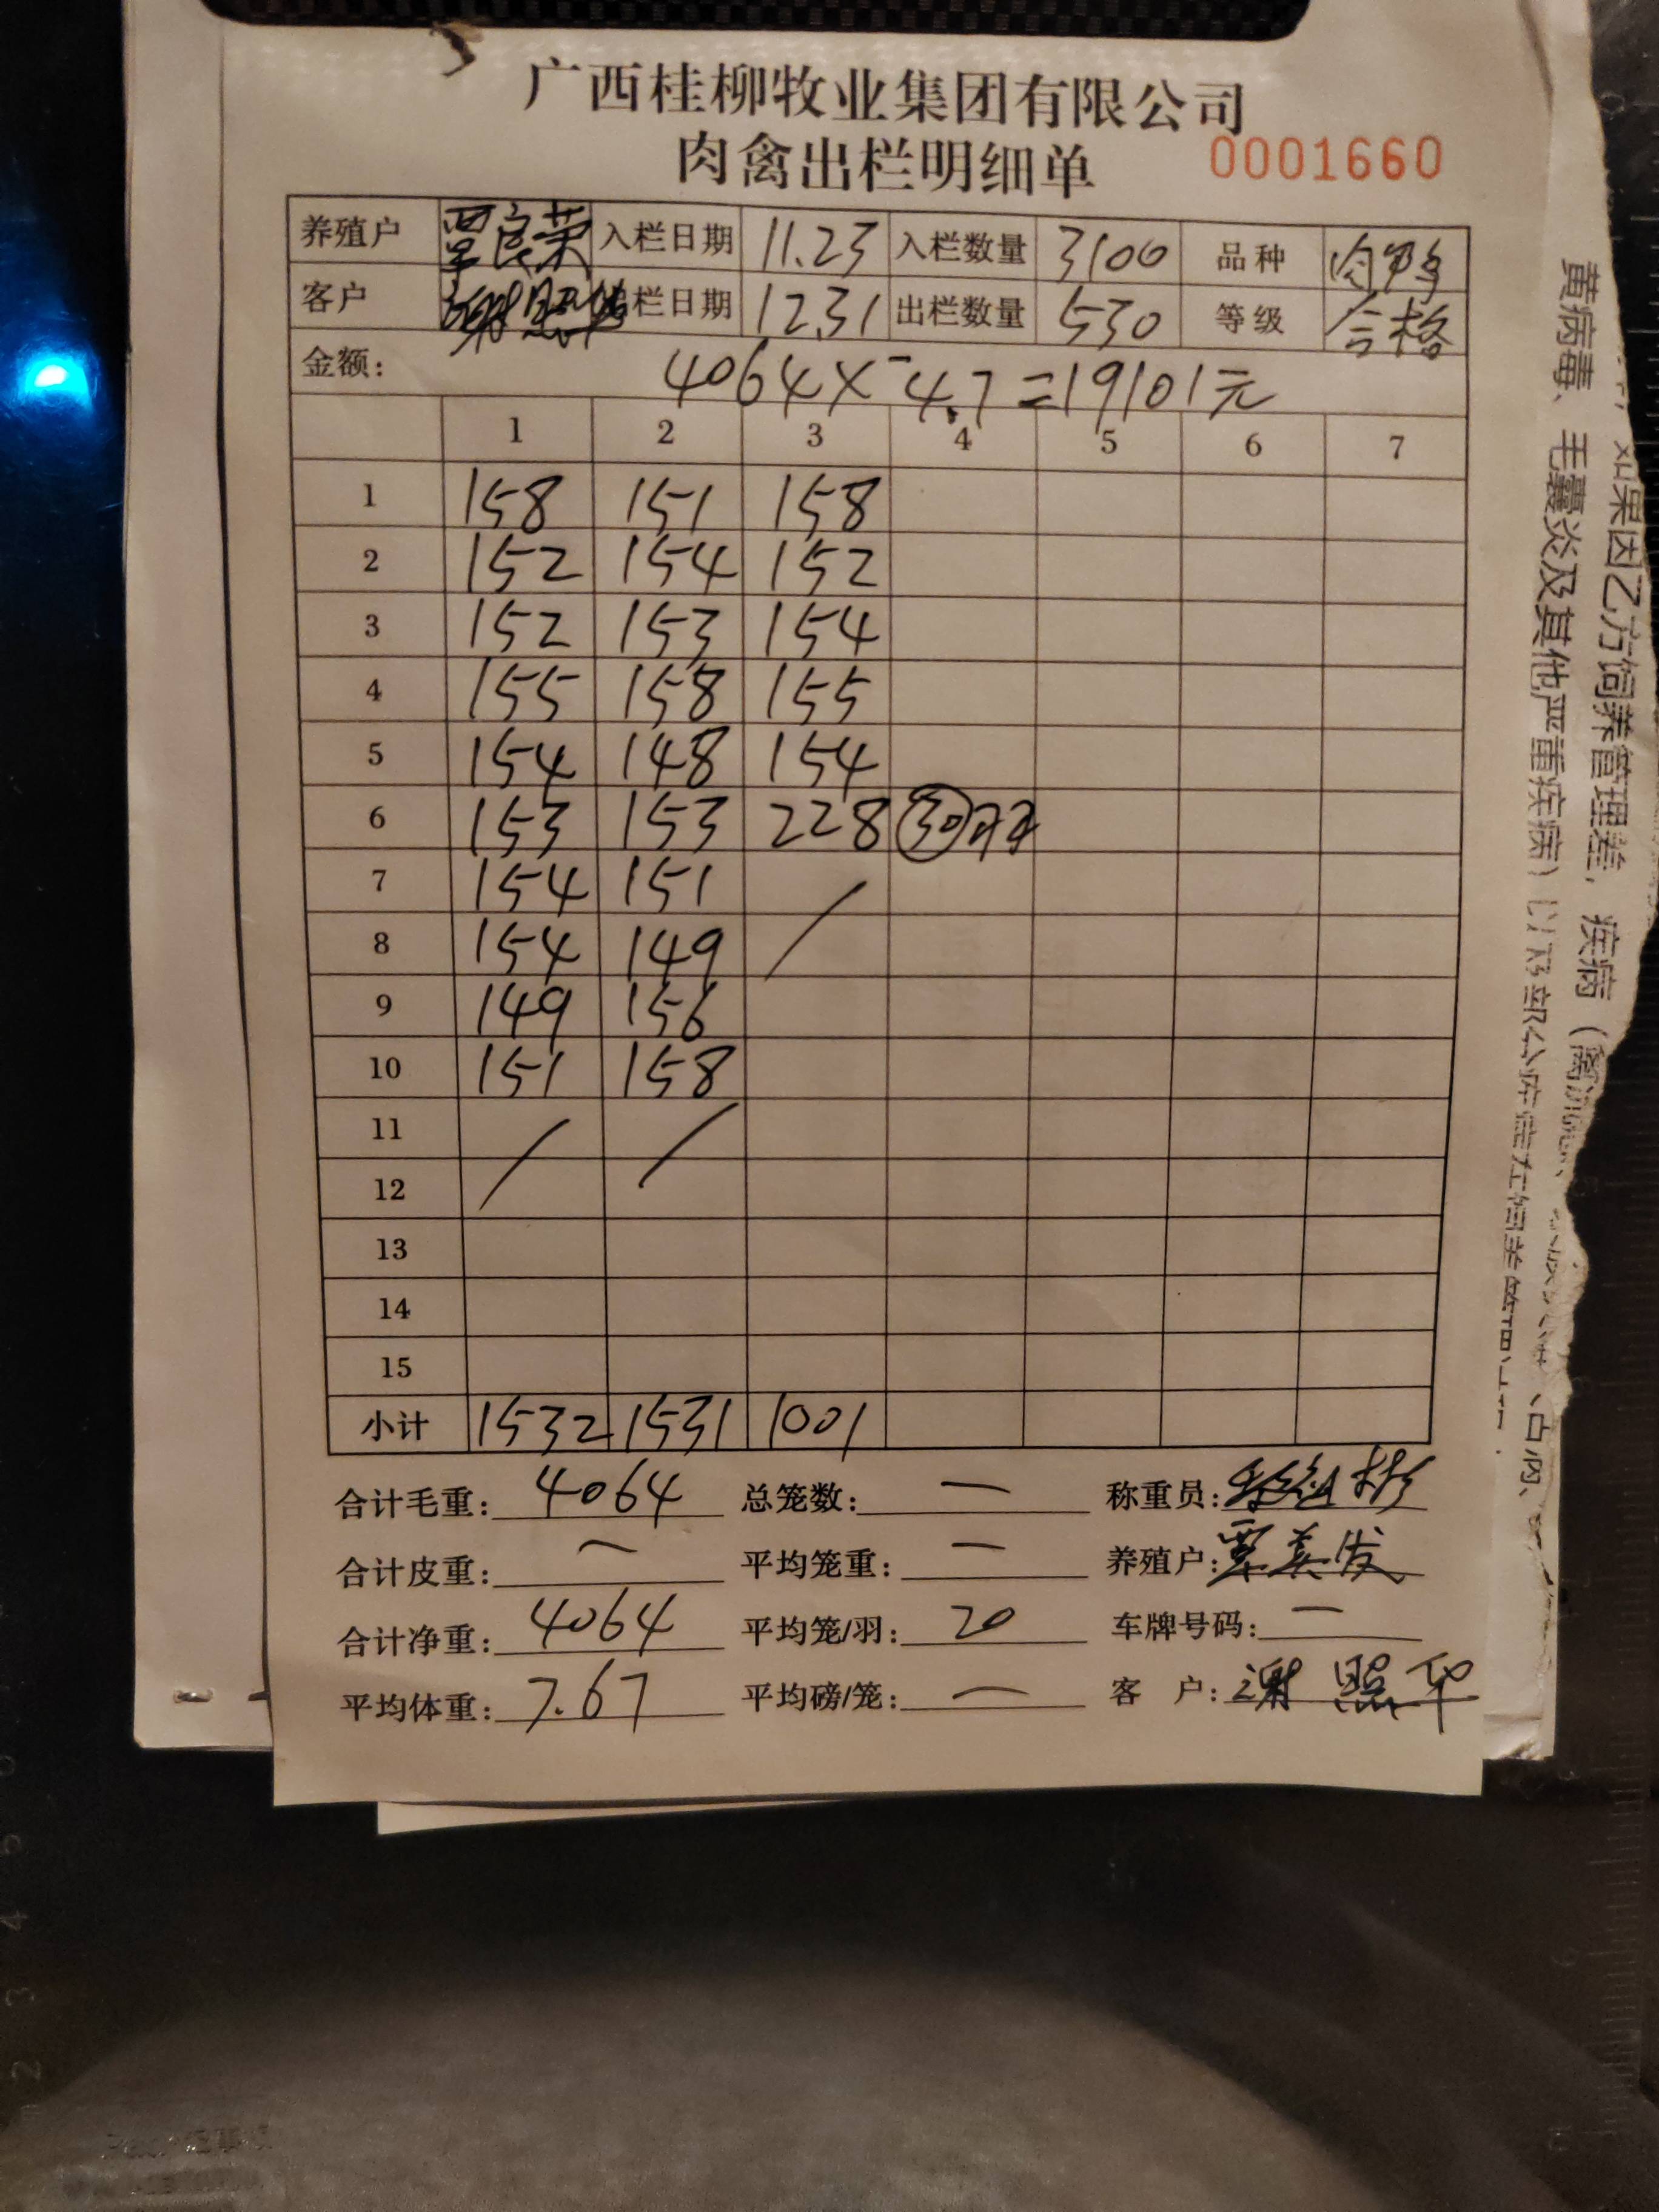 广西桂柳牧业集团有限公司
肉禽出栏明细单 0001660
养殖户 覃良荣 入栏日期 11.23 入栏数量 3100 品种 肉鸭
客户 谢照华 出栏日期 12.31 出栏数量 530 等级 合格
金额: 4064×4.7=19101元
1 2 3 4 5 6 7
1 158 151 158
2 152 154 152
3 152 153 154
4 155 158 155
5 154 148 154
6 153 153 228 30
7 154 151 /
8 154 149
9 149 156
10 151 158
11 / /
12
13
14
15
小计 1532 1531 1001
合计毛重: 4064 总笼数: — 称重员:
合计皮重: — 平均笼重: — 养殖户: 覃美发
合计净重: 4064 平均笼/羽: 20 车牌号码: —
平均体重: 7.67 平均磅/笼: — 客 户: 谢照华
如果因乙方饲养管理差,疾病(禽流感、
黄病毒、毛囊炎及其他严重疾病)